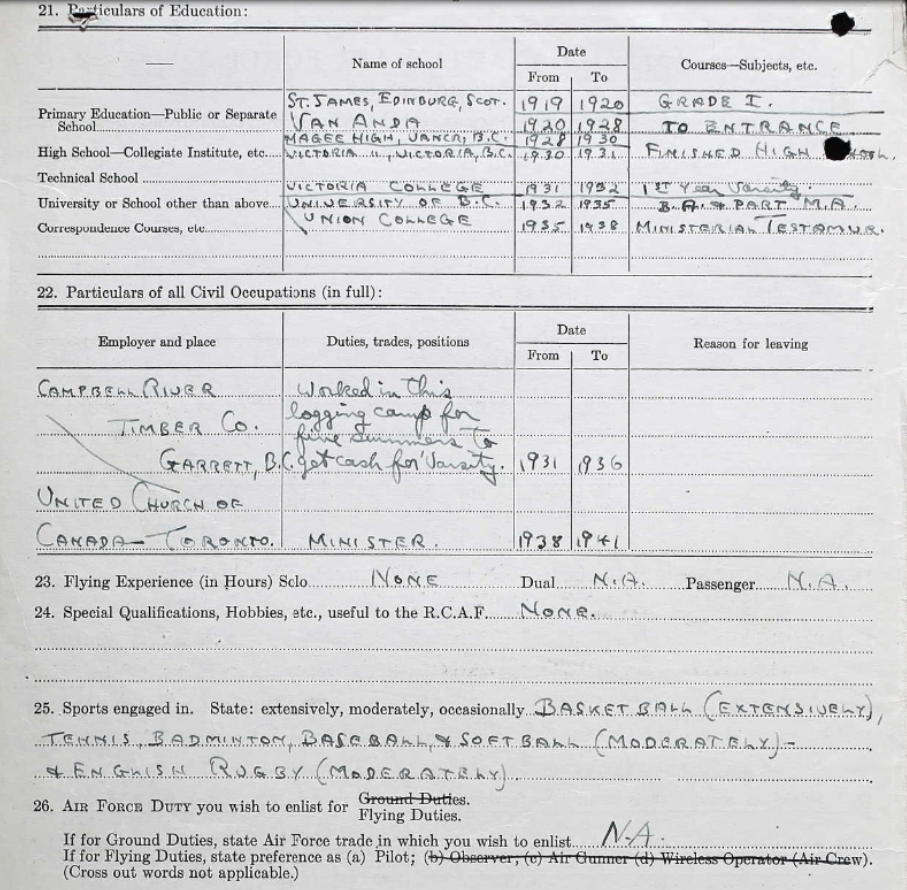 21. Particulars of Education:
Name of school Date Courses—Subjects, etc.
From To
ST. JAMES, EDINBURG, SCOT. 1919 1920 GRADE I.
Primary Education—Public or Separate School VAN ANDA 1920 1928 TO ENTRANCE
MAGEE HIGH, VANCR, B.C. 1928 1930
High School—Collegiate Institute, etc. VICTORIA ", VICTORIA, B.C. 1930 1931 FINISHED HIGH
Technical School
VICTORIA COLLEGE 1931 1932 1ST Year Varsity.
University or School other than above UNIVERSITY OF B.C. 1932 1935 B.A. & PART M.A.
Correspondence Courses, etc. UNION COLLEGE 1935 1938 MINISTERIAL TESTAMUR.
22. Particulars of all Civil Occupations (in full):
Employer and place Duties, trades, positions Date Reason for leaving
From To
CAMPBELL RIVER Worked in this
TIMBER CO. logging camp for
five summers to
GARRETT, B.C. get cash for 'Varsity. 1931 1936
UNITED CHURCH OF
CANADA—TORONTO. MINISTER. 1938 1941
23. Flying Experience (in Hours) Solo NONE Dual N.A. Passenger N.A.
24. Special Qualifications, Hobbies, etc., useful to the R.C.A.F. NONE.
25. Sports engaged in. State: extensively, moderately, occasionally BASKETBALL (EXTENSIVELY),
TENNIS, BADMINTON, BASEBALL, & SOFTBALL (MODERATELY)—
& ENGLISH RUGBY (MODERATELY)
26. AIR FORCE DUTY you wish to enlist for Ground Duties.
Flying Duties.
If for Ground Duties, state Air Force trade in which you wish to enlist N.A.
If for Flying Duties, state preference as (a) Pilot; (b) Observer; (c) Air Gunner (d) Wireless Operator (Air Crew).
(Cross out words not applicable.)